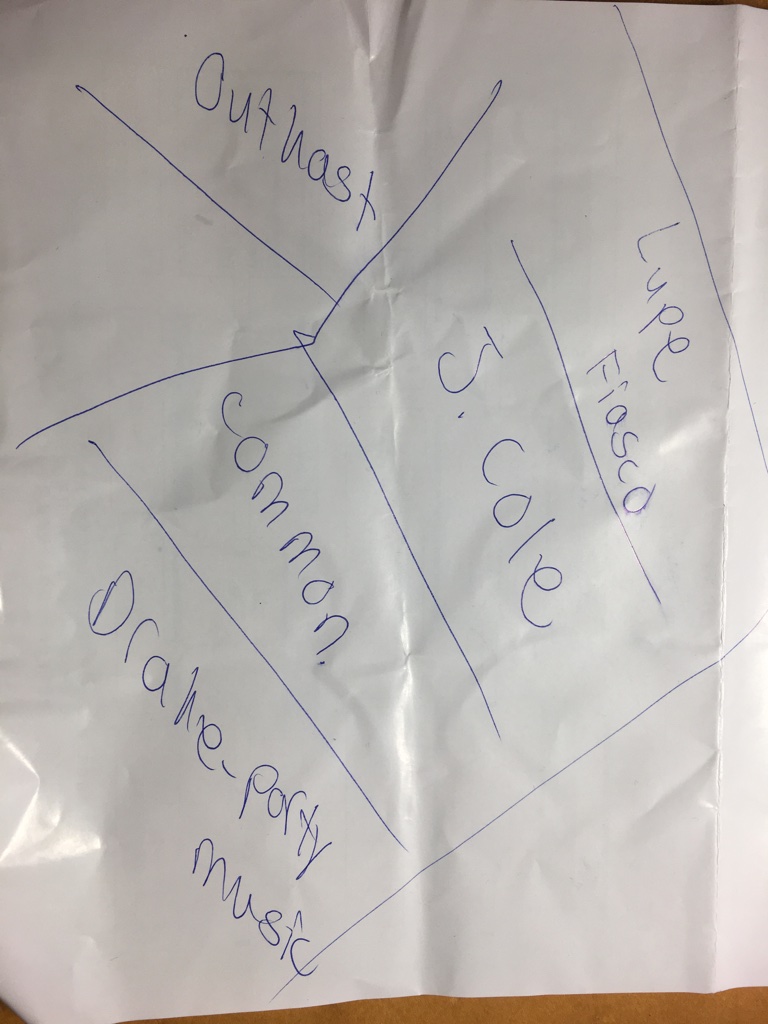 Outkast
Lupe
Fiasco
J. Cole
Common.
Drake-party
music